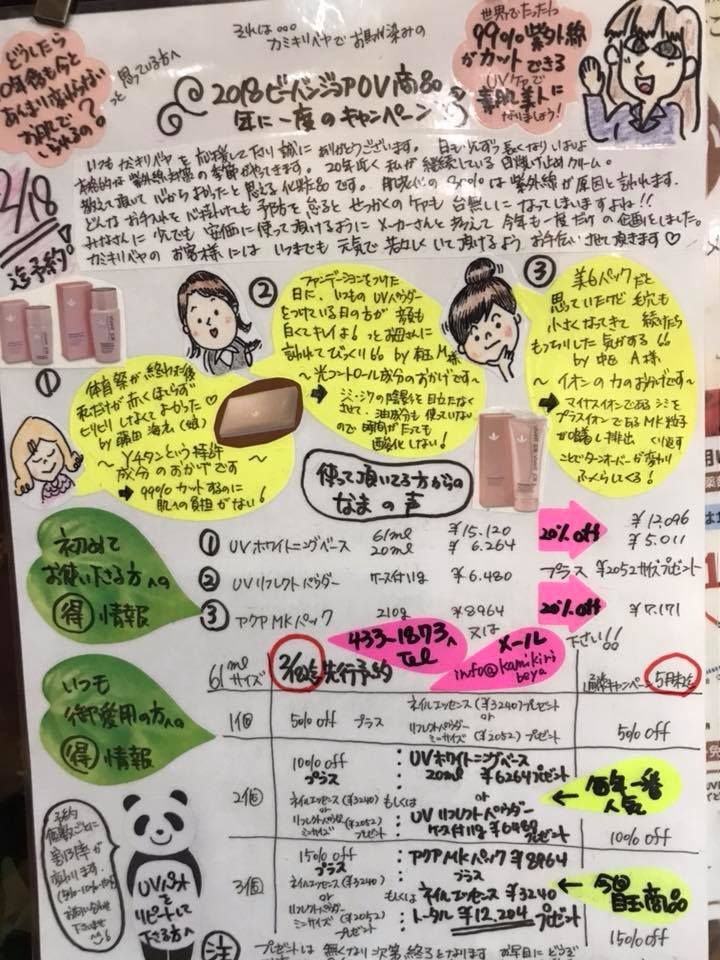 それは。。。
カミキリベヤで お馴染みの
2018 ビーバンジョア OV 商品
年に一度のキャンペーン
どうしたら
10年後も今と
あんまり変わらない
お肌で
いられるの?
っと 思っている方へ
世界でたった1つ
99%紫外線
がカットできる
UVケアで
素肌美人に
なりましょう!
2/18
迄予約!
いつも カミキリベヤを 応援して下さり 誠に ありがとうございます。
紫外線対策の季節がやってきます。 20年近く 私が 継続している 日焼け止めクリーム。
教えて頂いて 心からよかったと思える 化粧品です。 肌老化の 80%は 紫外線が 原因と 言われます。
どんな お手入れを 心掛けても 予防を 怠ると せっかくの ケアも 台無しに なってしまいますよね!!
みなさんに 少しでも 安価に 使って頂けるように メーカーさんと 考えて 今年も 一度だけの 企画をしました。
カミキリベヤの お客様には いつまでも 元気で 若々しく いて頂けるよう お手伝い させて頂きます♡
①
体育祭が 終わった後
私だけが 赤くほてらず
ヒリヒリしなくて よかった♡
by 藤田 海衣(娘)
～ Yチタンという 特許
成分の おかげです ～
➡ 99%カットするのに
肌への負担がない!
②
ファンデーションをつけた
日に、いつもの UVパウダー
をつけている日の方が 顔も
白くて キレイよ! っとお母さんに
言われて びっくり
～光コントロール成分のおかげです～
➡ シミ・シワの陰影を目立たなく
させて・油成分も 使っていない
ので 時間が たっても
酸化しない!
③
美白パックだと
思っていたけど 毛穴も
小さくなってきて 続けたら
もっちりした 気がする
by 中西 A様
～ イオンの力の おかげです ～
➡ マイナスイオンである シミを
プラスイオンである MK粒子
が 吸着し 排出 くり返す
ことで ターンオーバーが 変わり
ふっくらしてくる!
使って頂いてる方からの
なまの声
初めて
お使い下さる方への
得 情報
① UVホワイトニングベース 61ml ¥15.120 20% off ¥12.096
20ml ¥6.264 ¥5.011
② UVリフレクトパウダー ケース付11g ¥6.480 プラス ¥2052 サイズプレゼント
③ アクアMKパック 210g ¥8964 20% off ¥7.171
433-1873へ
Tel
又は
メール
info@kamikiri
beya
下さい!!
いつも
御愛用の方への
得 情報
61mlサイズ
2/18迄 先行予約
通常キャンペーン 5月末迄
1個
50% off プラス
ネイルエッセンス(¥3240)プレゼント
or
リフレクトパウダー
ミニサイズ(¥2052)プレゼント
50% off
2個
100% off
プラス
ネイルエッセンス(¥3240)
or
リフレクトパウダー
ミニサイズ(¥2052)
プレゼント
もしくは
: UVホワイトニングベース
20ml ¥6264プレゼント
or
: UV リフレクトパウダー
ケース付11g ¥6480
プレゼント
← 毎年一番
人気
100% off
3個
150% off
プラス
ネイルエッセンス(¥3240)
or
リフレクトパウダー
ミニサイズ(¥2052)
プレゼント
もしくは
: アクアMKパック ¥8964
プラス
: ネイルエッセンス ¥3240
トータル ¥12,204 プレゼント
← 今回
目玉商品
150% off
予約
個数ごとに
割引率が
変わります。
UVベースを
リピートして
下さる方へ
注
プレゼントは 無くなり次第 終了となります